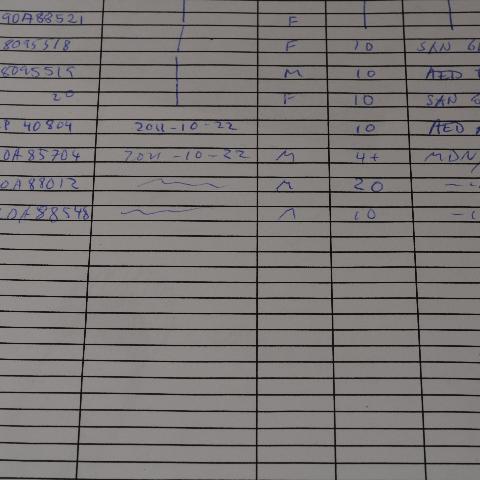 90A88521 F
8095518 F 10 SAN
8095519 M 10 AED
20 F 10 SAN
40804 2011-10-22 10 AED
0A85704 2011-10-22 M 4+ MDN
0A88012 M 20
0A88548 M 10